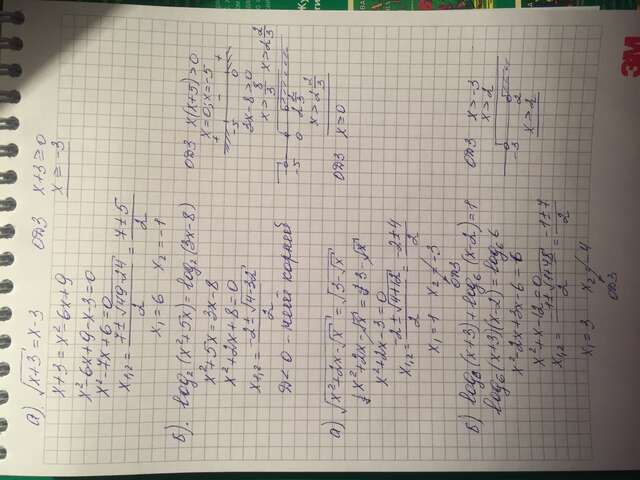 а). √(x+3) = x-3 ОДЗ x+3 ≥ 0
x+3 = x²-6x+9 x ≥ -3
x²-6x+9-x-3=0
x²-7x+6=0
x₁,₂ = (7±√(49-24))/2 = (7±5)/2
x₁=6 x₂=-1
Б). log₂(x²+5x) = log₂(3x-8) ОДЗ x(x+5)>0
x²+5x=3x-8 x=0; x=-5
+ - +
-5 0
x²+2x+8=0 3x-8>0
x₁,₂ = (-2±√(4-32))/2 x > 8/3 x > 2 2/3
D<0 - нет корней -5 0 2 2/3
x > 2 2/3
а) √(x²+2x-√x) = √(3-√x) ОДЗ x ≥ 0
x²+2x-√x = 3-√x
x²+2x-3=0
x₁,₂ = (-2±√(4+12))/2 = (-2±4)/2
x₁=1 x₂=-3
ОДЗ
Б) log₆(x+3)+log₆(x-2)=1 ОДЗ x>-3
x>2
log₆(x+3)(x-2)=log₆6
-3 2
x²-2x+3x-6=6 x>2
x²+x-12=0
x₁,₂ = (-1±√(1+48))/2 = (-1±7)/2
x₁=3 x₂=-4
ОДЗ
3M